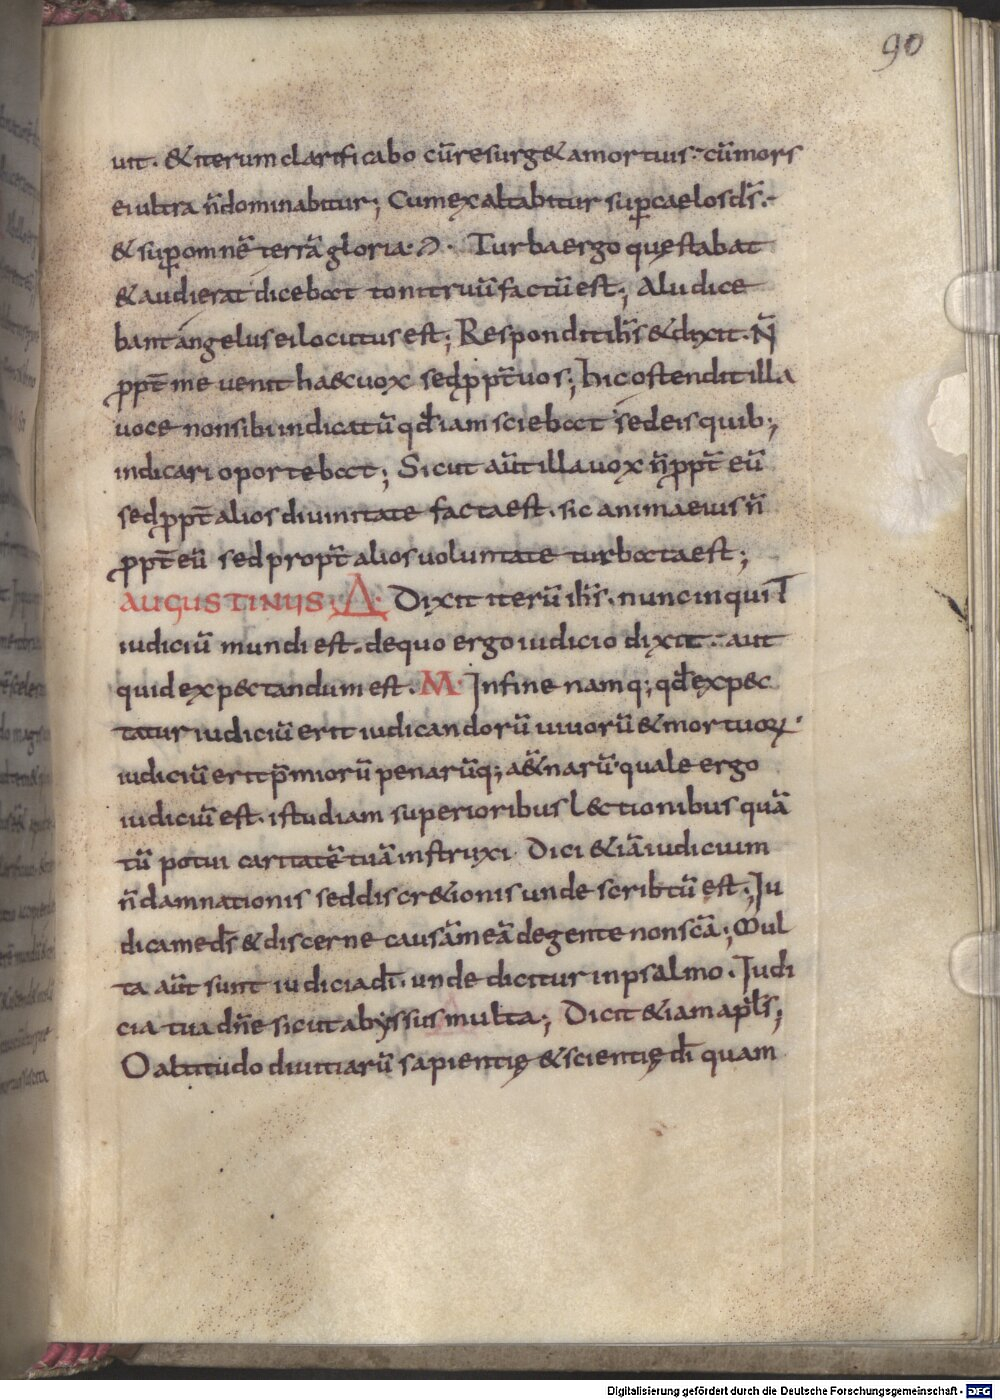 90
uit. & iterum clarificabo cū resurg& a mortuis. cū mors
ei ultra n̄ dominabitur; Cum exaltabitur sup caelos ds̄.
& sup omnē terrā gloria. Turba ergo quę stabat
& audierat dicebat tonitruū factū est; Alii dice
bant angelus ei locutus est; Respondit ih̄s & dixit. N̄
ppt̄ me uenit haec uox sed ppt̄ uos; hic ostendit illa
uoce non sibi indicatū qd̄ iam sciebat sed eis quib;
indicari oportebat; Sicut aūt illa uox n̄ ppt̄ eū
sed ppt̄ alios diuinitate facta est. sic anima eius n̄
ppt̄ eū sed propt̄ alios uoluntate turbata est;
AUGUSTINUS; Δ. Dixit iterū ih̄s. nunc inquit
iudiciū mundi est. de quo ergo iudicio dixit. aut
quid exp&candum est. M. In fine namq; qd̄ exp&c
tatur iudiciū erit iudicandorū uiuorū & mortuoꝝ.
iudiciū erit p̄miorū penarūq; a&̄narū. quale ergo
iudiciū est. istud iam superioribus l&ctionibus quā
tū potui caritatē tuā instruxi. Dici & iā iudicium
n̄ damnationis sed discr&ionis unde scribtū est; Iu
dica me ds̄ & discerne causā meā de gente non scā; Mul
ta aūt sunt iudicia dī. unde dicitur in psalmo. Iudi
cia tua dn̄e sicut abyssus multa; Dicit & iam apl̄s;
O altitudo diuitiarū sapientię & scientię dī quam
Digitalisierung gefördert durch die Deutsche Forschungsgemeinschaft - DFG